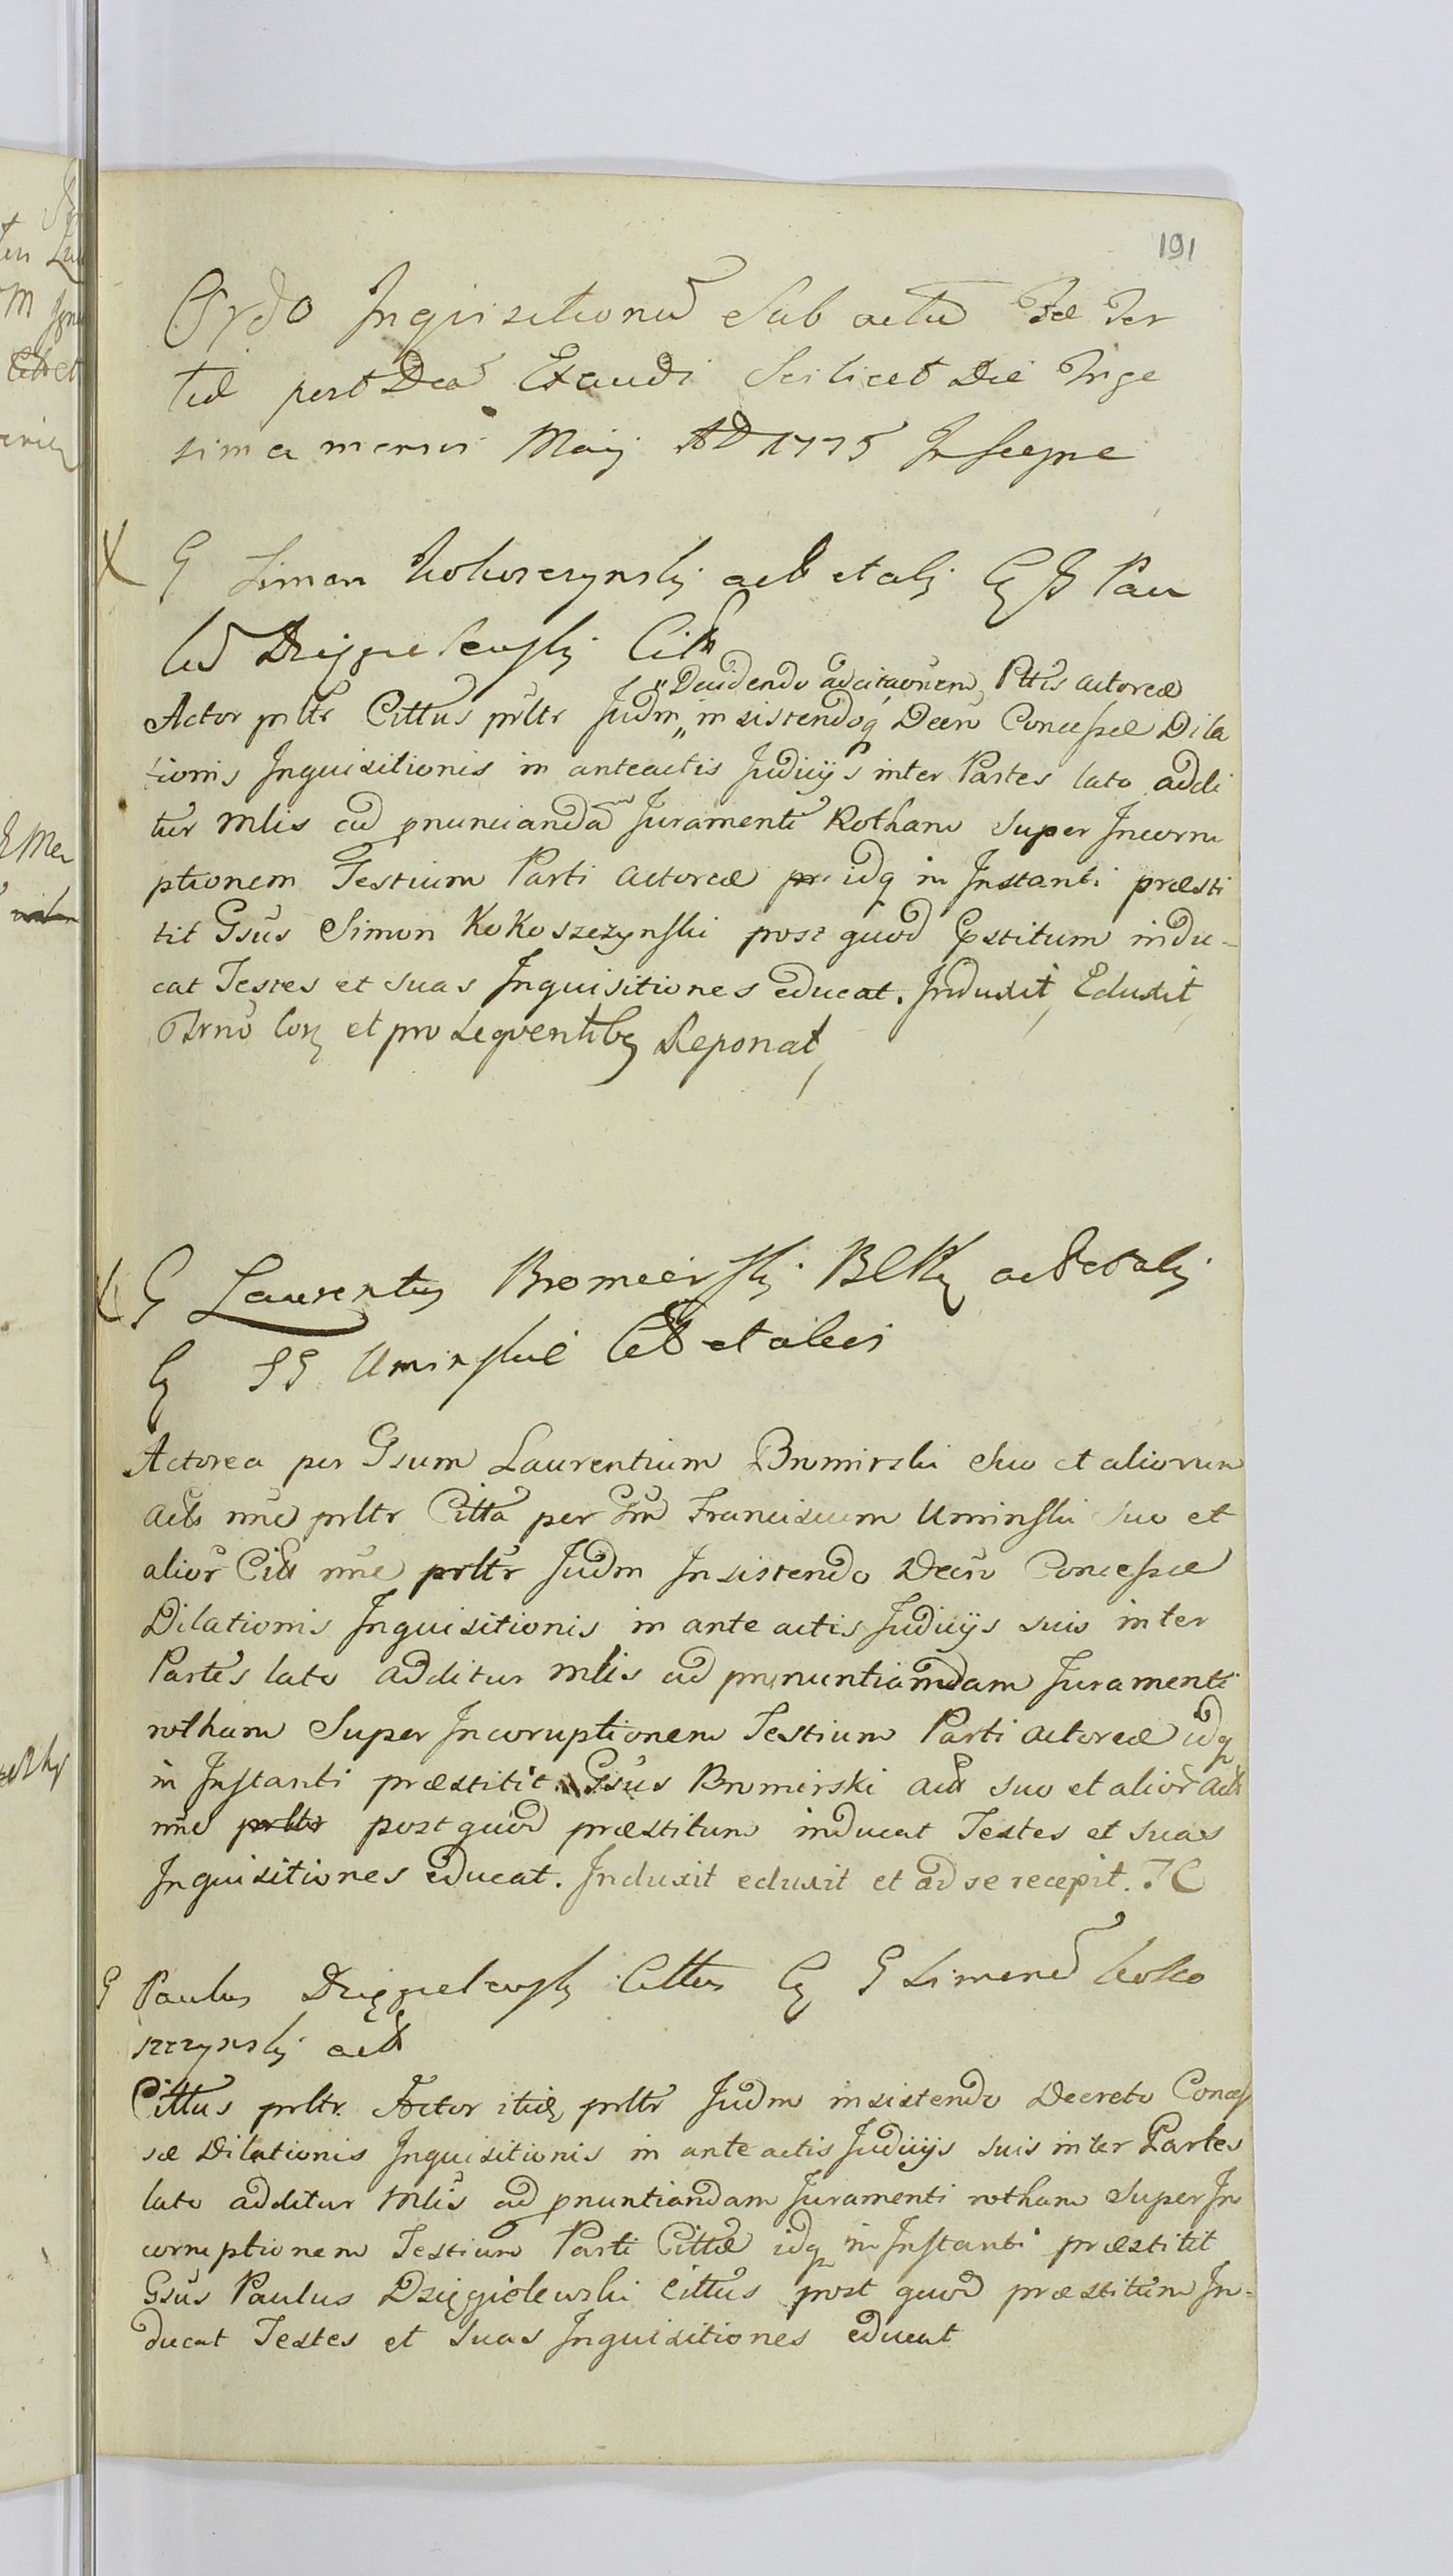 191
Ordo Inquisitionũ Sub actũ Fæ Ter
tiæ post Dcã Exaudi Scilicet Die Trige
sima mensis Maij AD 1775 In
G Simon Kokoszczynskj act et alij Cg G Pau
lũ Dzięgielewskj Citt
„Decidendo adcitaõnem Pttis actoreæ
Actor prltr Cittus prltr Judm „ insistendoq Decro Concessæ Dila
tionis Inquisitionis in anteactis Judicijs inter Partes lato addi
tur Mlis ad pnuncianda Juramenti Rotham super Incorru
ptionem Testium Parti Actoreæ idq in Instanti præsti
tit Gsus Simon Kokoszczynski post quod pstitum indu-
cat Testes et suas Inquisitiones educat. Induxit, Eduxit,
et pro sequentibg Reponat,
G Laurentius Bromierskj act et alij
Cg GG Uminskie Citt et alios
Actorea per Gsum Laurentium Bromirski Suo et aliorum
Act nne prltr Citta per Franciscum Uminski suo et
alior Citt nne prltr Judm Insistendo Decro Concessæ
Dilationis Inquisitionis in ante actis Judicijs suis inter
Partes lato additur Mlis ad pronuntiamdam Juramenti
rotham Super Incoruptionem Testium Parti actoreæ idq
in Instanti præstitit. Gsus Bromirski act suo et alior act
nne prltr post quod præstitum inducat Testes et suas
Inquisitiones educat. Induxit eduxit et ad se recepit. TC
G Paulus Dzięgielewskj Cittus Cg G Simonẽ Koko
szczynskj act
Cittus prltr. Actor prltr Judm insistendo Decreto Conces
sæ Dilationis Inquisitionis in ante actis Judicijs suis inter Partes
lato additur Mlis ad pnuntiandam Juramenti rotham Super In
corruptionem Testium Parti Cittæ idq in Instanti præstitit
Gsus Paulus Dzięgielewski Cittus post quod præstitum In-
ducat Testes et suas Inquisitiones educat